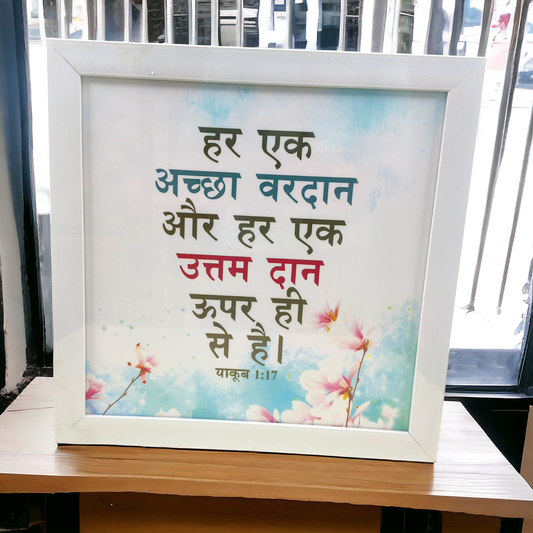 हर एक
अच्छा वरदान
और हर एक
उत्तम दान
ऊपर ही
से है।
याकूब 1:17